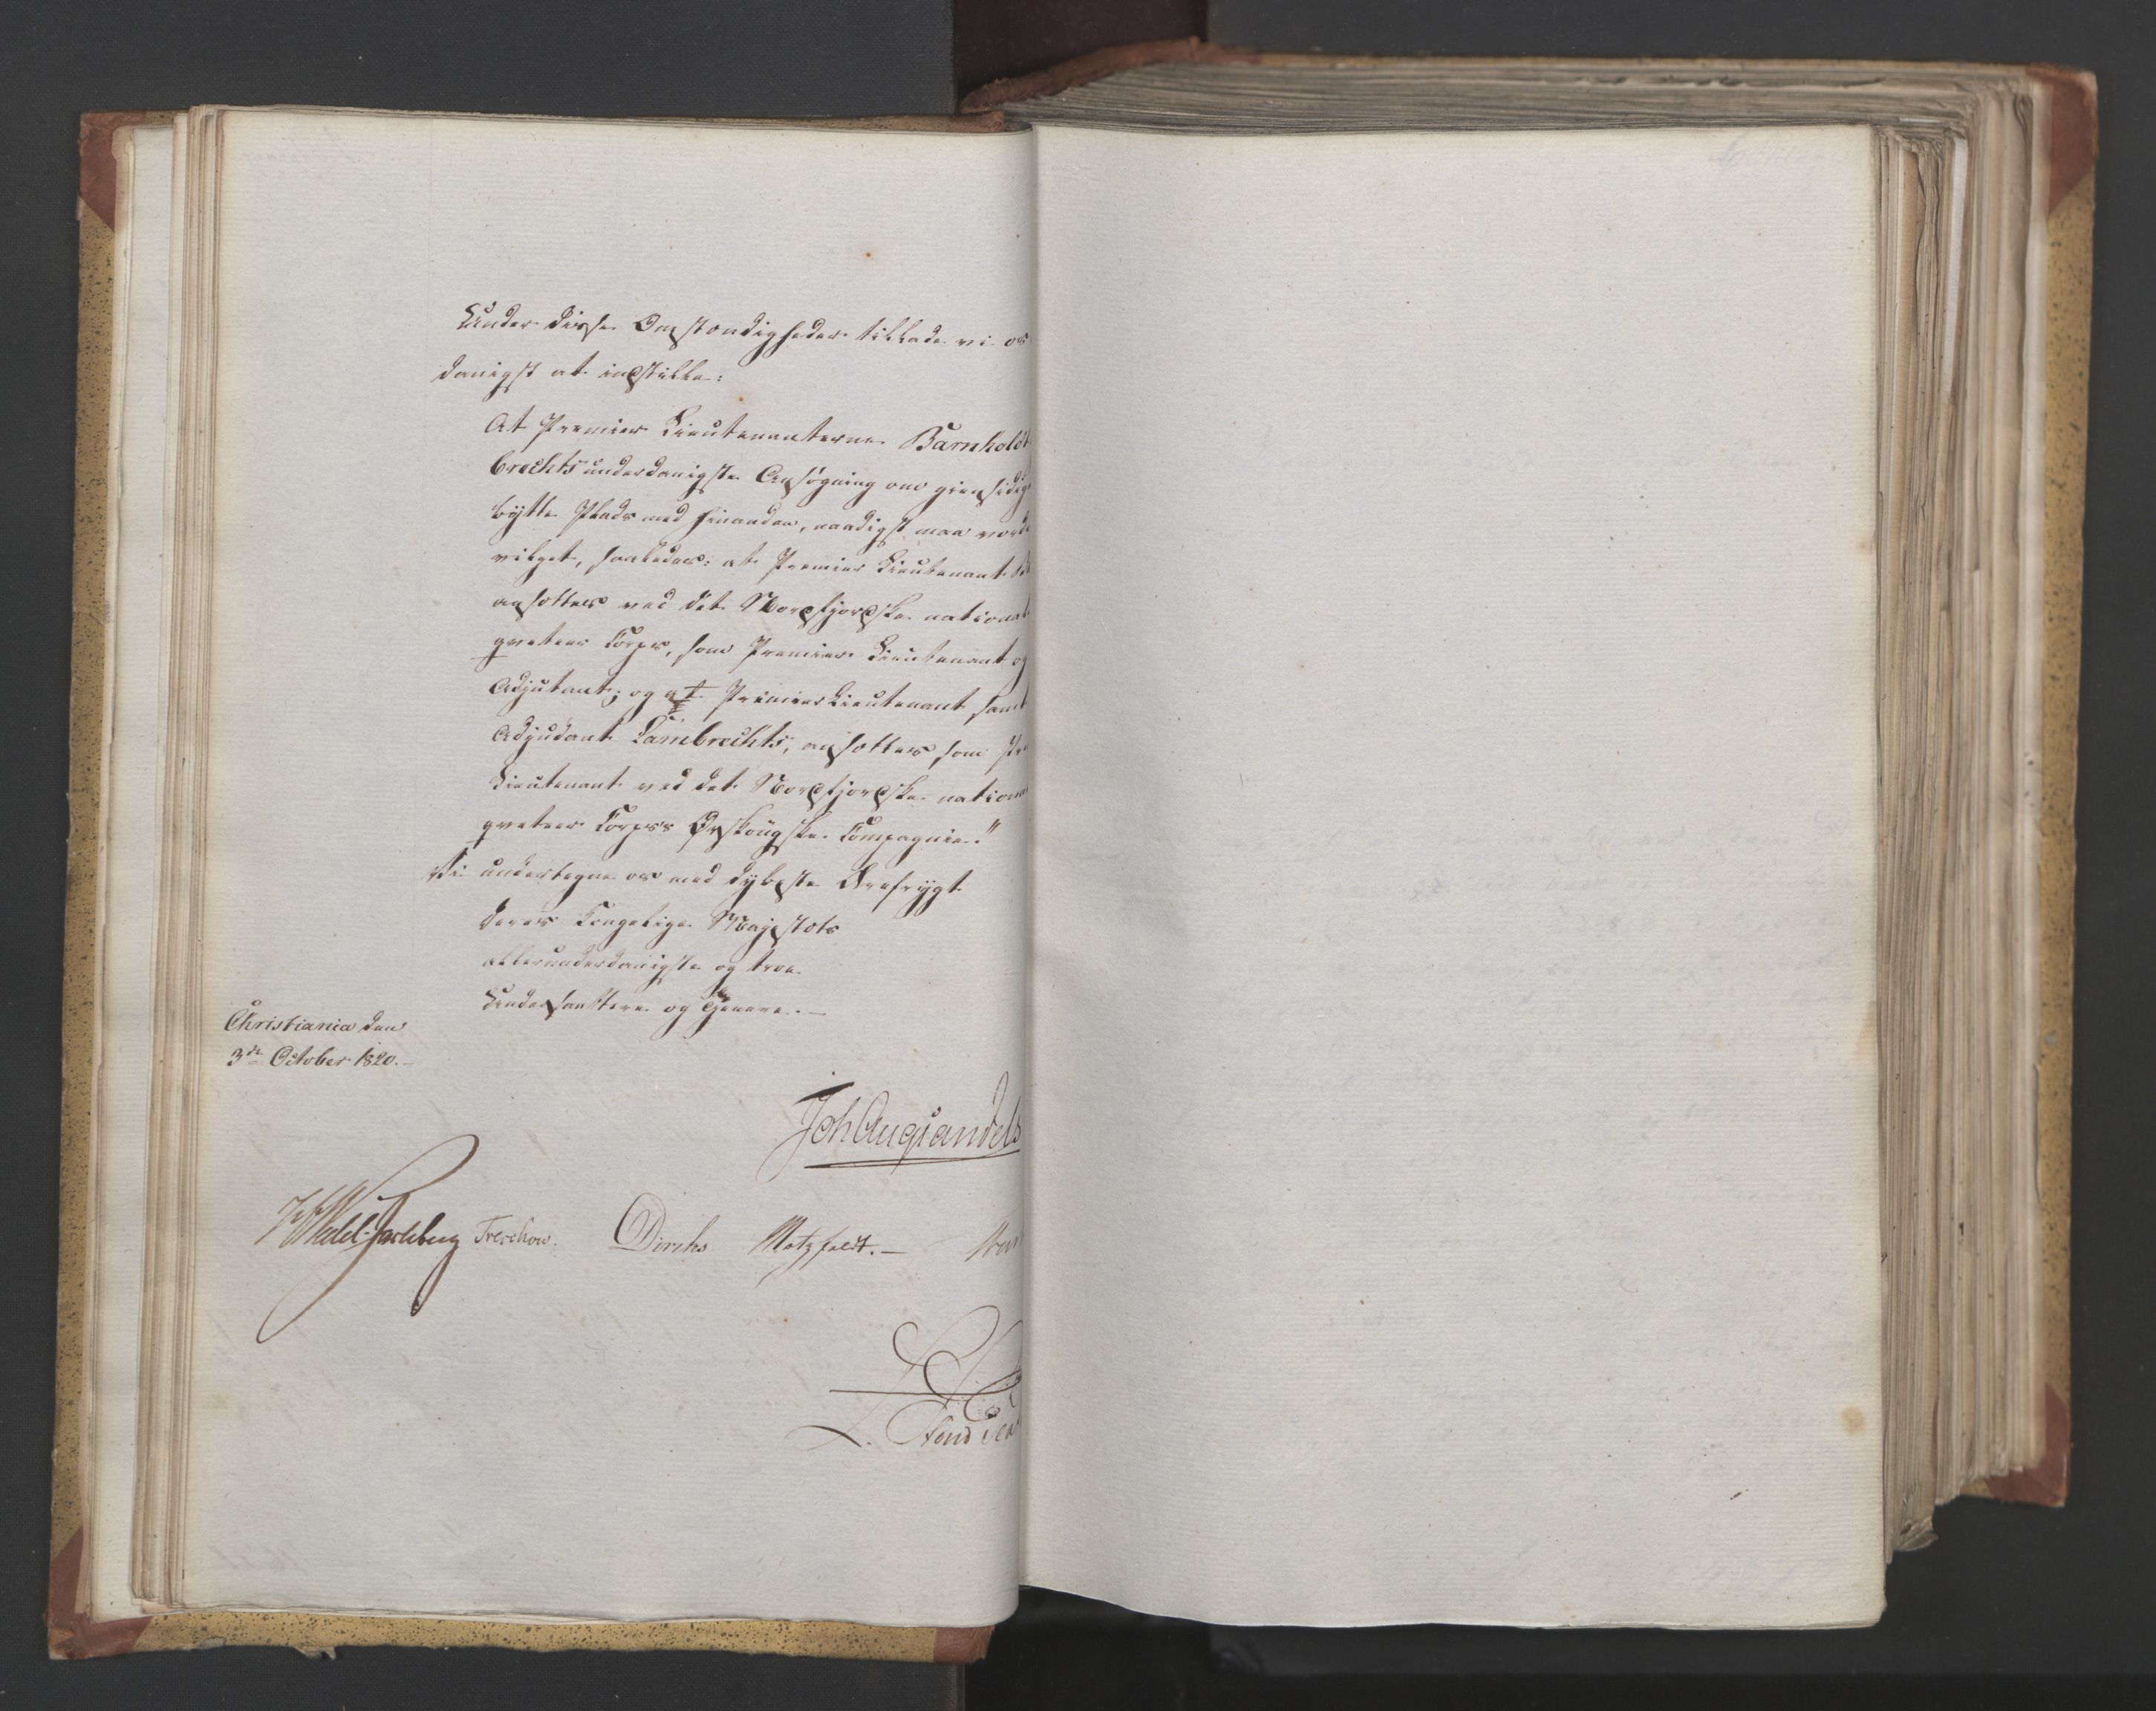 Under disse Omstændigheder tillade vi os
danigst at indstille:
At Premier Lieutenanterne Barnholdt
brechts underdanigste Ansøgning om giensidig
bytte Plads med hinanden, naadigst maa vorde
vilget, saaledes: at Premier Lieutenant
ansættes ved det Nordfjordske national
geveteer Corps, som Premier Lieutenant og
Adjutant; og at Premier Lieutenant samt
Adjudant Lambrechts, ansættes som Pre
Lieutenant ved det Nordfjordske nationa
geveteer Corps's Ørskougske Compagnie."
Vi undertegne os med dybeste Ærefrygt
Deres Kongelige Majestæts
allerunderdanigste og troe
Undersaattere og Tjenere. —
Christiania den
3de October 1820. —
Joh Aug Sandels
Wedel-Jarlsberg Treschow. Diriks Motzfeldt. —